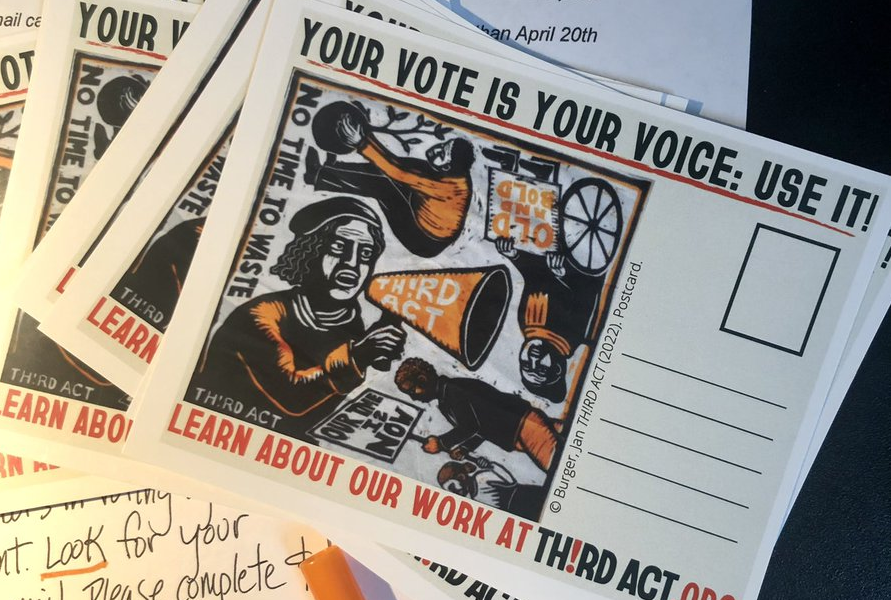 than April 20th
YOUR VOTE IS YOUR VOICE: USE IT!
NO TIME TO WASTE
OLD
AND
BOLD
TH!RD
ACT
OUR TIME
IS
NOW
TH!RD ACT
LEARN ABOUT OUR WORK AT TH!RD ACT.ORG
© Burger, Jan TH!RD ACT (2022). Postcard.
YOUR
NO TIME TO
WASTE
TH!RD ACT
LEARN
TH!RD ACT
LEARN ABOU
Look for your
Please complete &